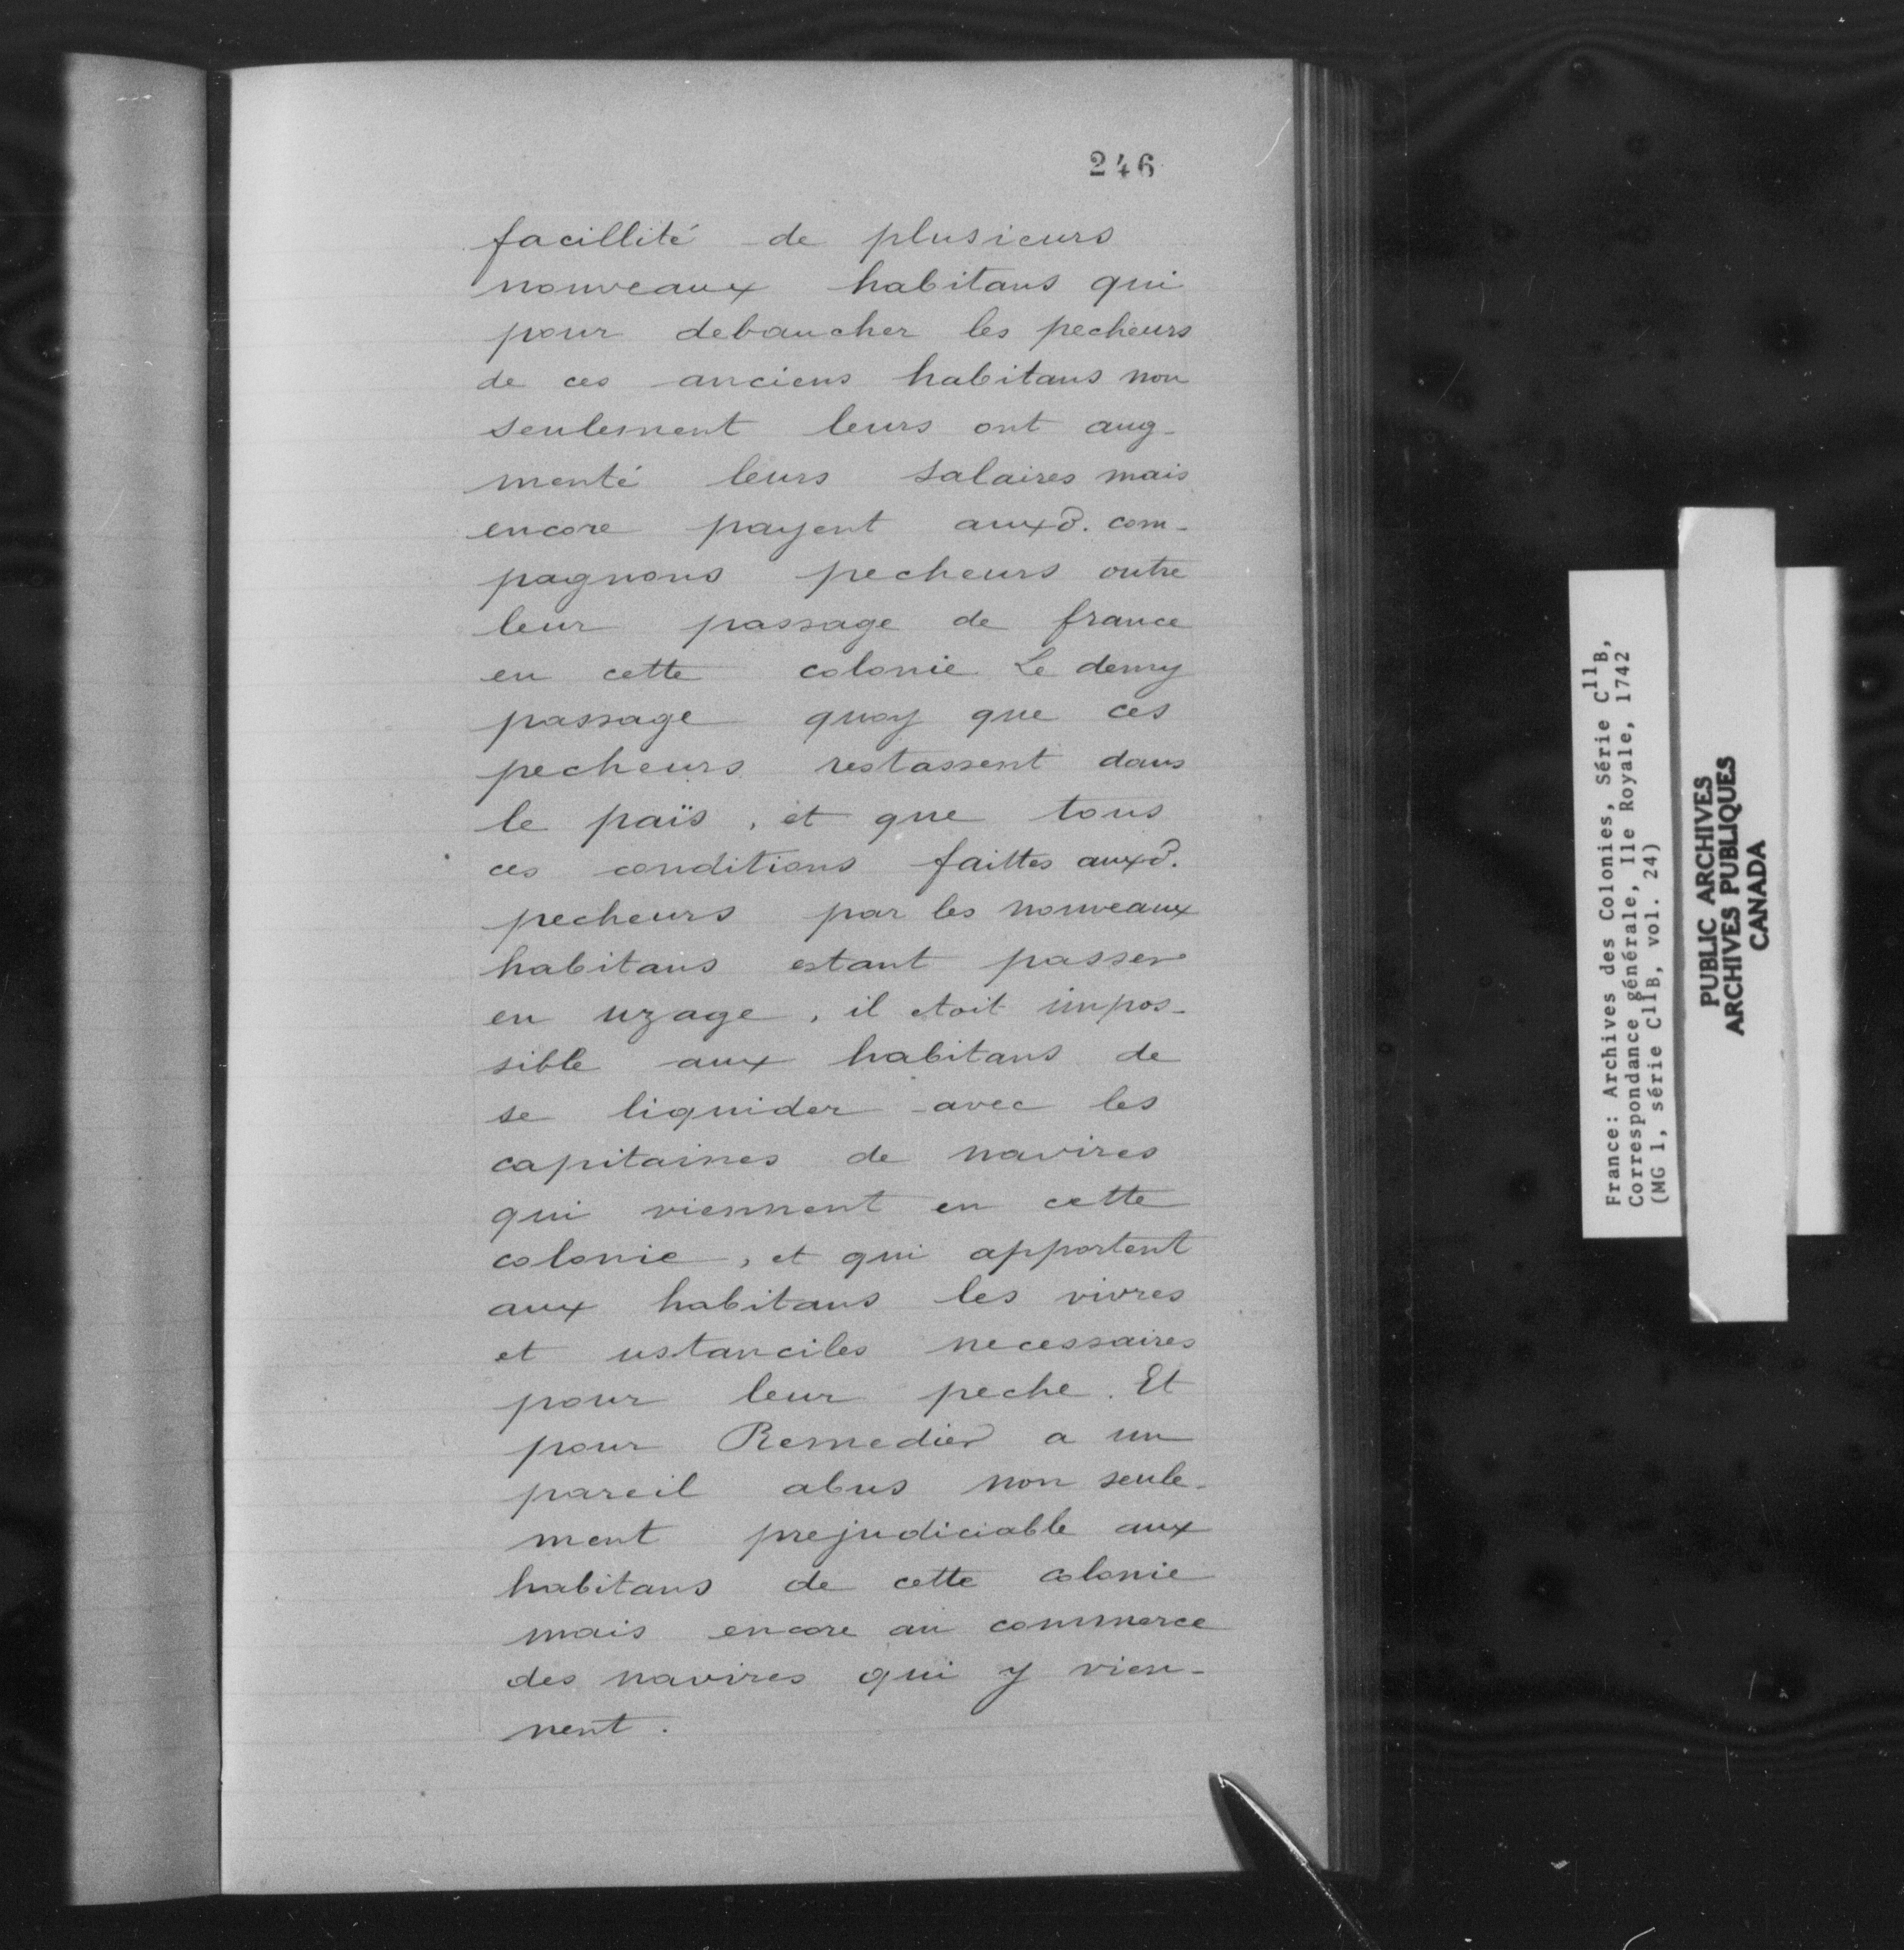 246
facillité de plusieurs
nouveaux habitans qui
pour debaucher les pecheurs
de ces anciens habitans non
seulement leurs ont aug-
menté leurs salaires mais
encore payent auxd. com-
pagnons pecheurs outre
leur passage de france
en cette colonie Le demy
passage quoy que ces
pecheurs restassent dans
le païs, et que tous
ces conditions faittes auxd.
pecheurs par les nouveaux
habitans estant passer
en uzage, il etoit impos-
sible aux habitans de
se liquider avec les
capitaines de navires
qui viennent en cette
colonie, et qui apportent
aux habitans les vivres
et ustanciles necessaires
pour leur peche. Et
pour Remedier a un
pareil abus non seule-
ment prejudiciable aux
habitans de cette colonie
mais encore au commerce
des navires qui y vien-
nent.
France: Archives des Colonies, Série C11B,
Correspondance générale, Ile Royale, 1742
(MG 1, série C11B, vol. 24)
PUBLIC ARCHIVES
ARCHIVES PUBLIQUES
CANADA